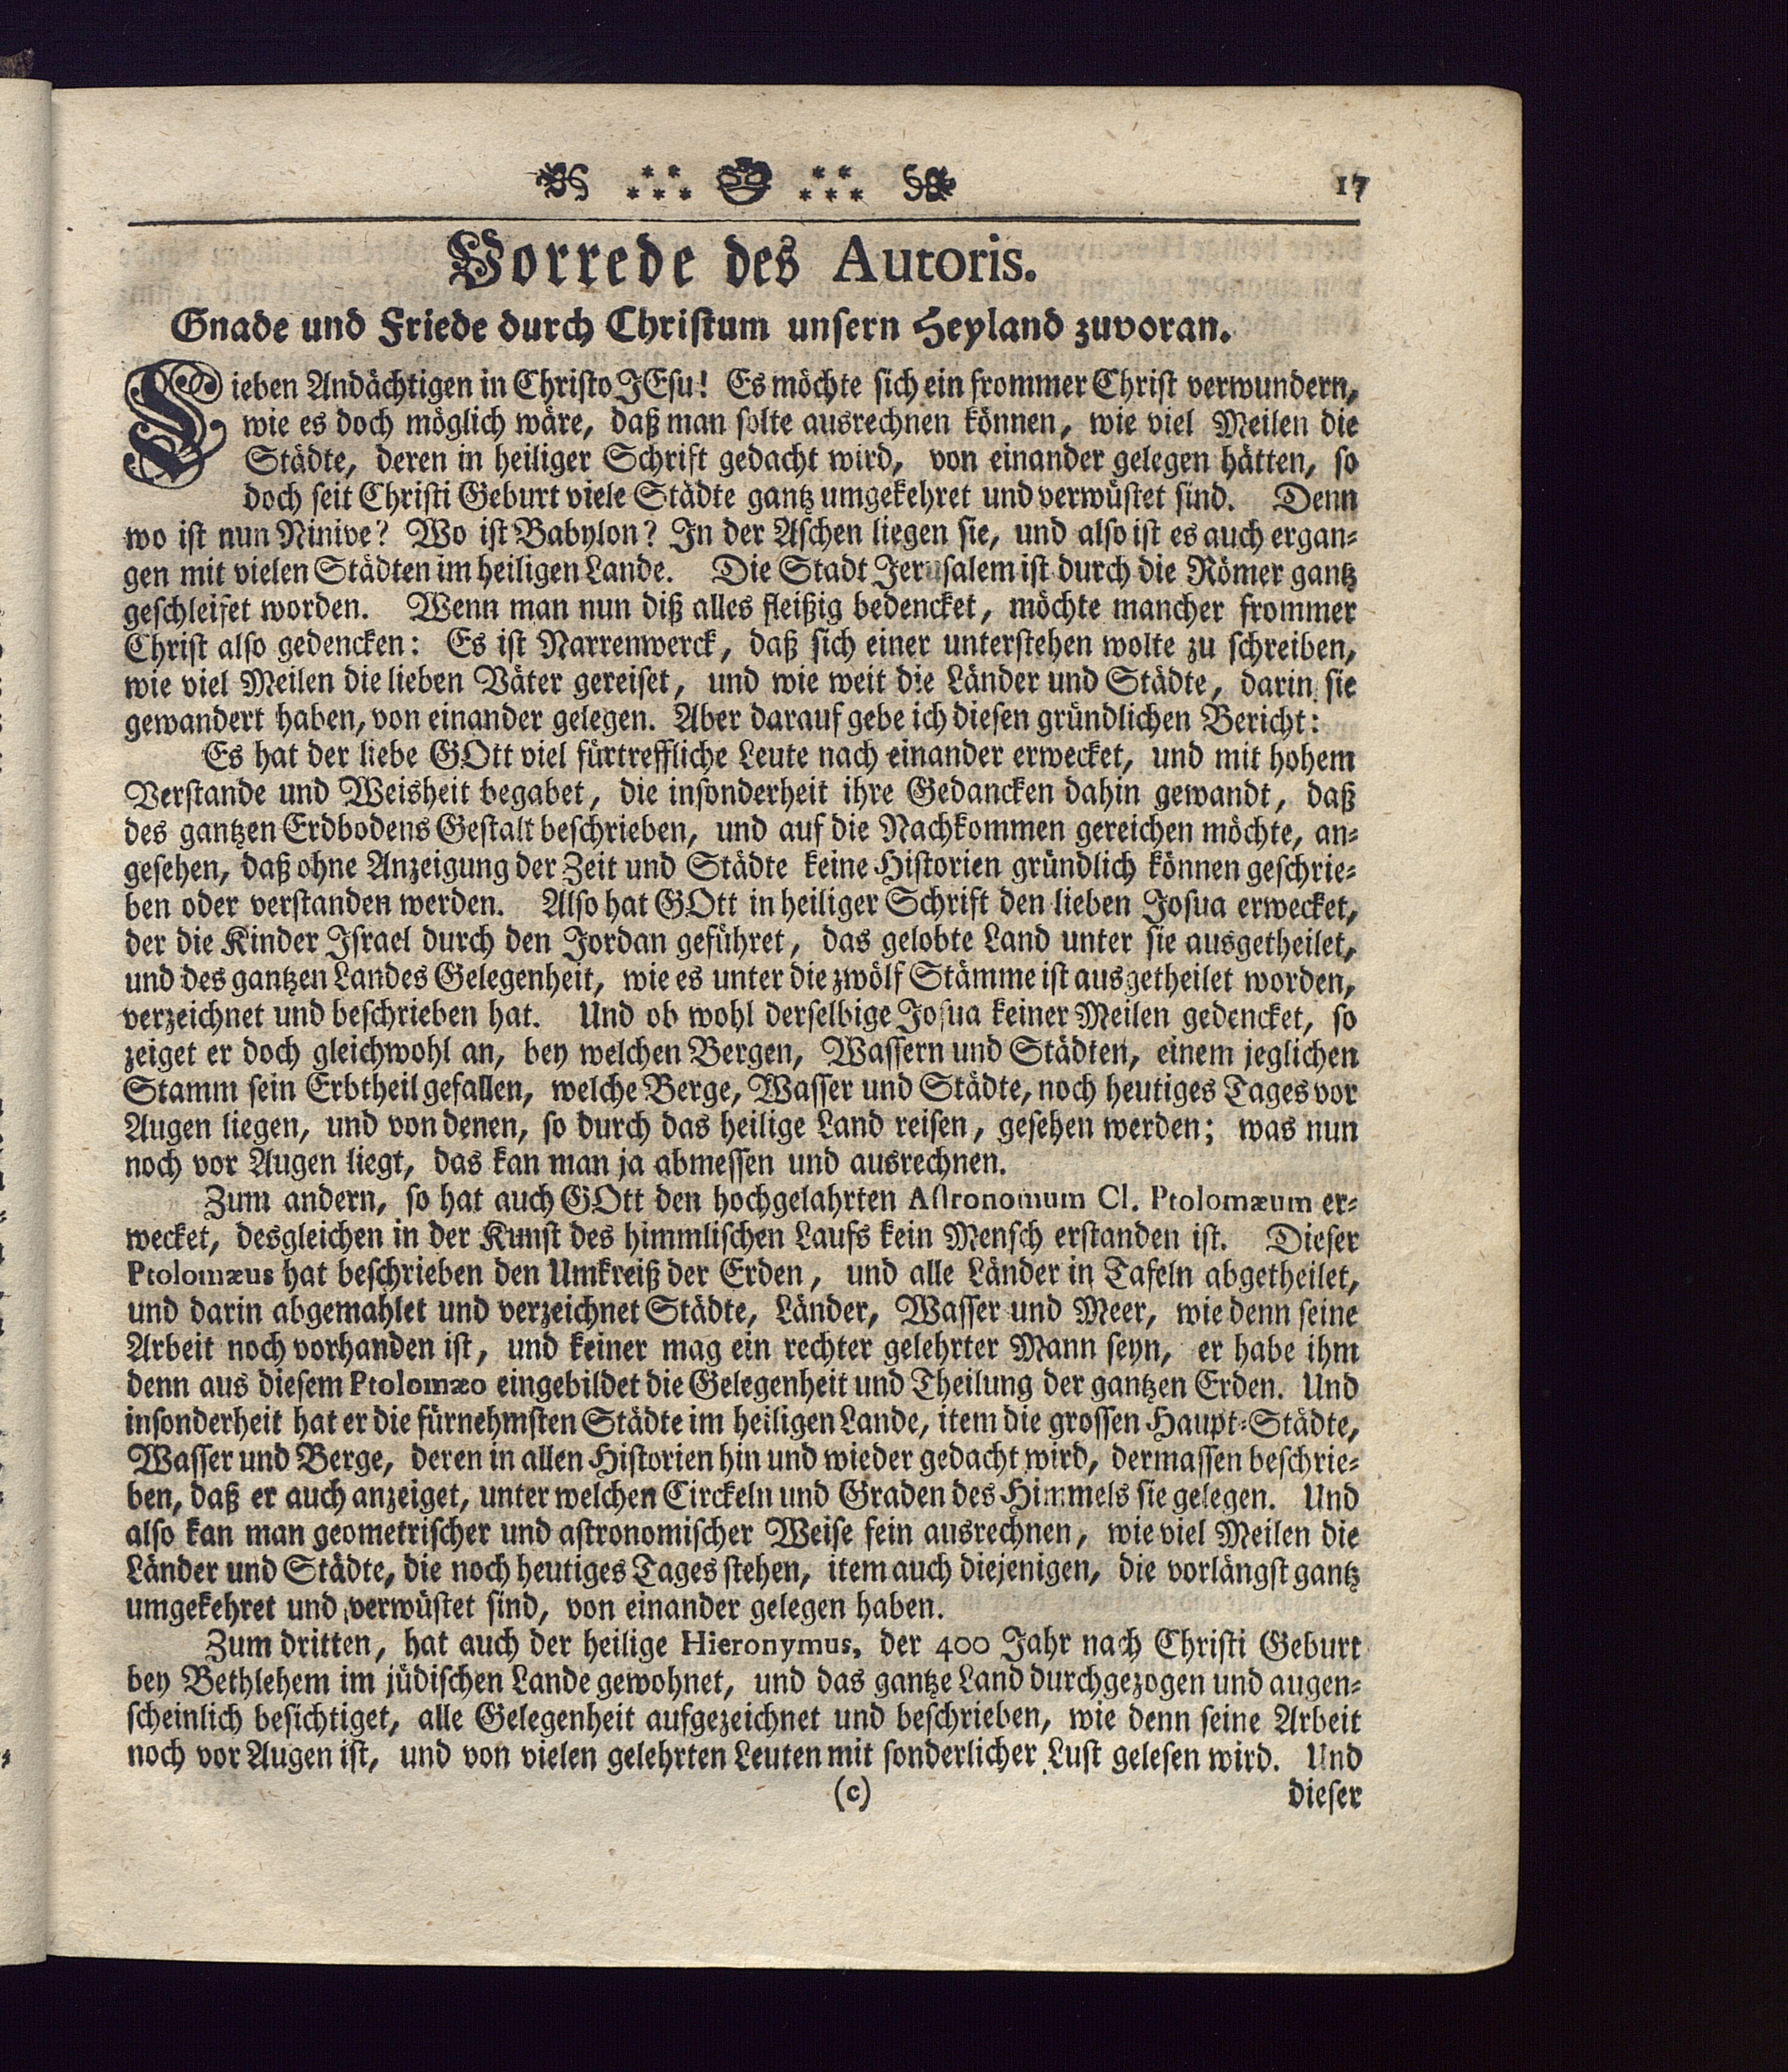 17
Vorrede des Autoris.
Gnade und Friede durch Christum unsern Heyland zuvoran.
Lieben Andächtigen in Christo JEsu! Es möchte sich ein frommer Christ verwundern,
wie es doch möglich wäre, daß man solte ausrechnen können, wie viel Meilen die
Städte, deren in heiliger Schrift gedacht wird, von einander gelegen hätten, so
doch seit Christi Geburt viele Städte gantz umgekehret und verwüstet sind. Denn
wo ist nun Ninive? Wo ist Babylon? In der Aschen liegen sie, und also ist es auch ergan-
gen mit vielen Städten im heiligen Lande. Die Stadt Jerusalem ist durch die Römer gantz
geschleifet worden. Wenn man nun diß alles fleißig bedencket, möchte mancher frommer
Christ also gedencken: Es ist Narrenwerck, daß sich einer unterstehen wolte zu schreiben,
wie viel Meilen die lieben Väter gereiset, und wie weit die Länder und Städte, darin sie
gewandert haben, von einander gelegen. Aber darauf gebe ich diesen gründlichen Bericht:
Es hat der liebe GOtt viel fürtreffliche Leute nach einander erwecket, und mit hohem
Verstande und Weisheit begabet, die insonderheit ihre Gedancken dahin gewandt, daß
des gantzen Erdbodens Gestalt beschrieben, und auf die Nachkommen gereichen möchte, an-
gesehen, daß ohne Anzeigung der Zeit und Städte keine Historien gründlich können geschrie-
ben oder verstanden werden. Also hat GOtt in heiliger Schrift den lieben Josua erwecket,
der die Kinder Israel durch den Jordan geführet, das gelobte Land unter sie ausgetheilet,
und des gantzen Landes Gelegenheit, wie es unter die zwölf Stämme ist ausgetheilet worden,
verzeichnet und beschrieben hat. Und ob wohl derselbige Josua keiner Meilen gedencket, so
zeiget er doch gleichwohl an, bey welchen Bergen, Wassern und Städten, einem jeglichen
Stamm sein Erbtheil gefallen, welche Berge, Wasser und Städte, noch heutiges Tages vor
Augen liegen, und von denen, so durch das heilige Land reisen, gesehen werden; was nun
noch vor Augen liegt, das kan man ja abmessen und ausrechnen.
Zum andern, so hat auch GOtt den hochgelahrten Astronomum Cl. Ptolomæum er-
wecket, desgleichen in der Kunst des himmlischen Laufs kein Mensch erstanden ist. Dieser
Ptolomæus hat beschrieben den Umkreiß der Erden, und alle Länder in Tafeln abgetheilet,
und darin abgemahlet und verzeichnet Städte, Länder, Wasser und Meer, wie denn seine
Arbeit noch vorhanden ist, und keiner mag ein rechter gelehrter Mann seyn, er habe ihm
denn aus diesem Ptolomæo eingebildet die Gelegenheit und Theilung der gantzen Erden. Und
insonderheit hat er die fürnehmsten Städte im heiligen Lande, item die grossen Haupt-Städte,
Wasser und Berge, deren in allen Historien hin und wieder gedacht wird, dermassen beschrie-
ben, daß er auch anzeiget, unter welchen Circkeln und Graden des Himmels sie gelegen. Und
also kan man geometrischer und astronomischer Weise fein ausrechnen, wie viel Meilen die
Länder und Städte, die noch heutiges Tages stehen, item auch diejenigen, die vorlängst gantz
umgekehret und verwüstet sind, von einander gelegen haben.
Zum dritten, hat auch der heilige Hieronymus, der 400 Jahr nach Christi Geburt
bey Bethlehem im jüdischen Lande gewohnet, und das gantze Land durchgezogen und augen-
scheinlich besichtiget, alle Gelegenheit aufgezeichnet und beschrieben, wie denn seine Arbeit
noch vor Augen ist, und von vielen gelehrten Leuten mit sonderlicher Lust gelesen wird. Und
(c) dieser